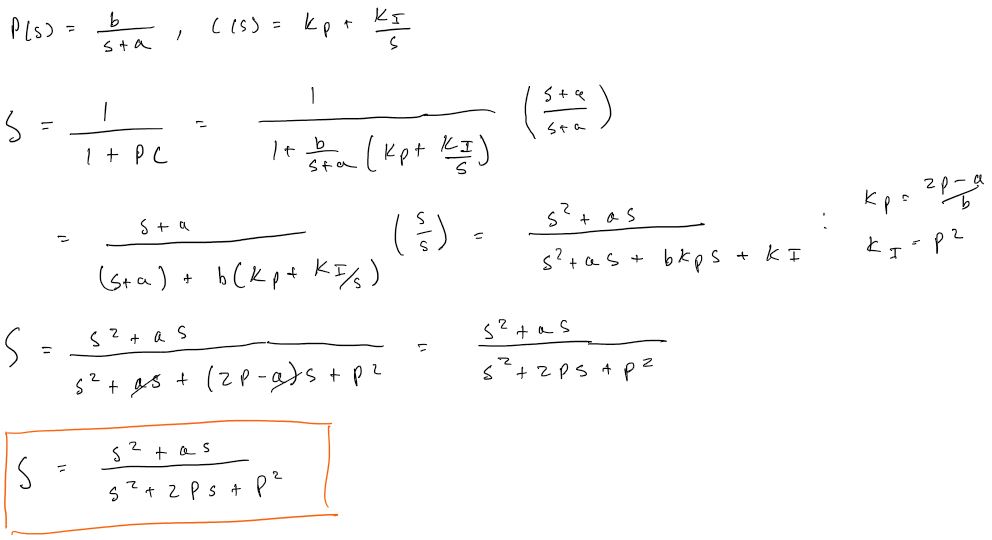 P(s) = b/(s+a) , C(s) = Kp + KI/s
S = 1/(1 + PC) = 1/(1 + b/(s+a) (Kp + KI/s)) ((s+a)/(s+a))
= (s+a)/((s+a) + b(Kp + KI/s)) (s/s) = (s² + as)/(s² + as + bKps + KI) :
Kp = (2p-a)/b
KI = p²
S = (s² + as)/(s² + as + (2p-a)s + p²) = (s² + as)/(s² + 2ps + p²)
S = (s² + as)/(s² + 2ps + p²)